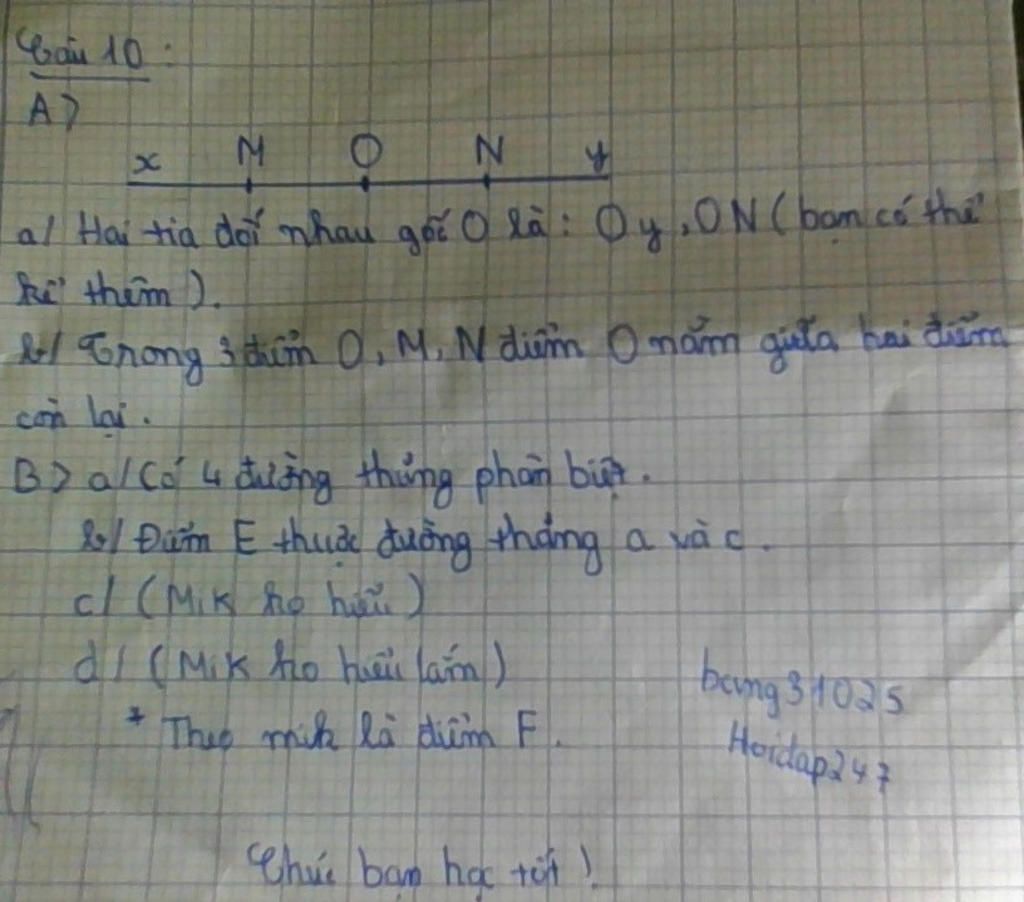 Câu 10:
A>
x M O N y
a/ Hai tia đối nhau gốc O là: Oy, ON (bạn có thể
kể thêm).
b/ Trong 3 điểm O, M, N điểm O nằm giữa hai điểm
còn lại.
B> a/ Có 4 đường thẳng phân biệt.
b/ Điểm E thuộc đường thẳng a và c.
c/ (Mik ko hiểu)
d/ (Mik ko hiểu lắm)
* Theo mik là điểm F.
bang31025
Hoidap247
Chúc bạn học tốt!